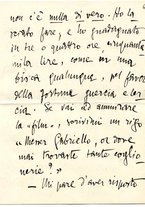 non c'è nulla di vero. Ho la
fatto fare, e ho guadagnato
in tre o quattro ore cinquanta
mila lire, come in una
bisca qualunque, pel favore
della fortuna guercia e
Se vai ad ammirare
la "film", scrivimi un rigo
"Messer Gabriello, or dove
mai trovaste tante coglio
nerie?"
— Mi pare d'aver risposto